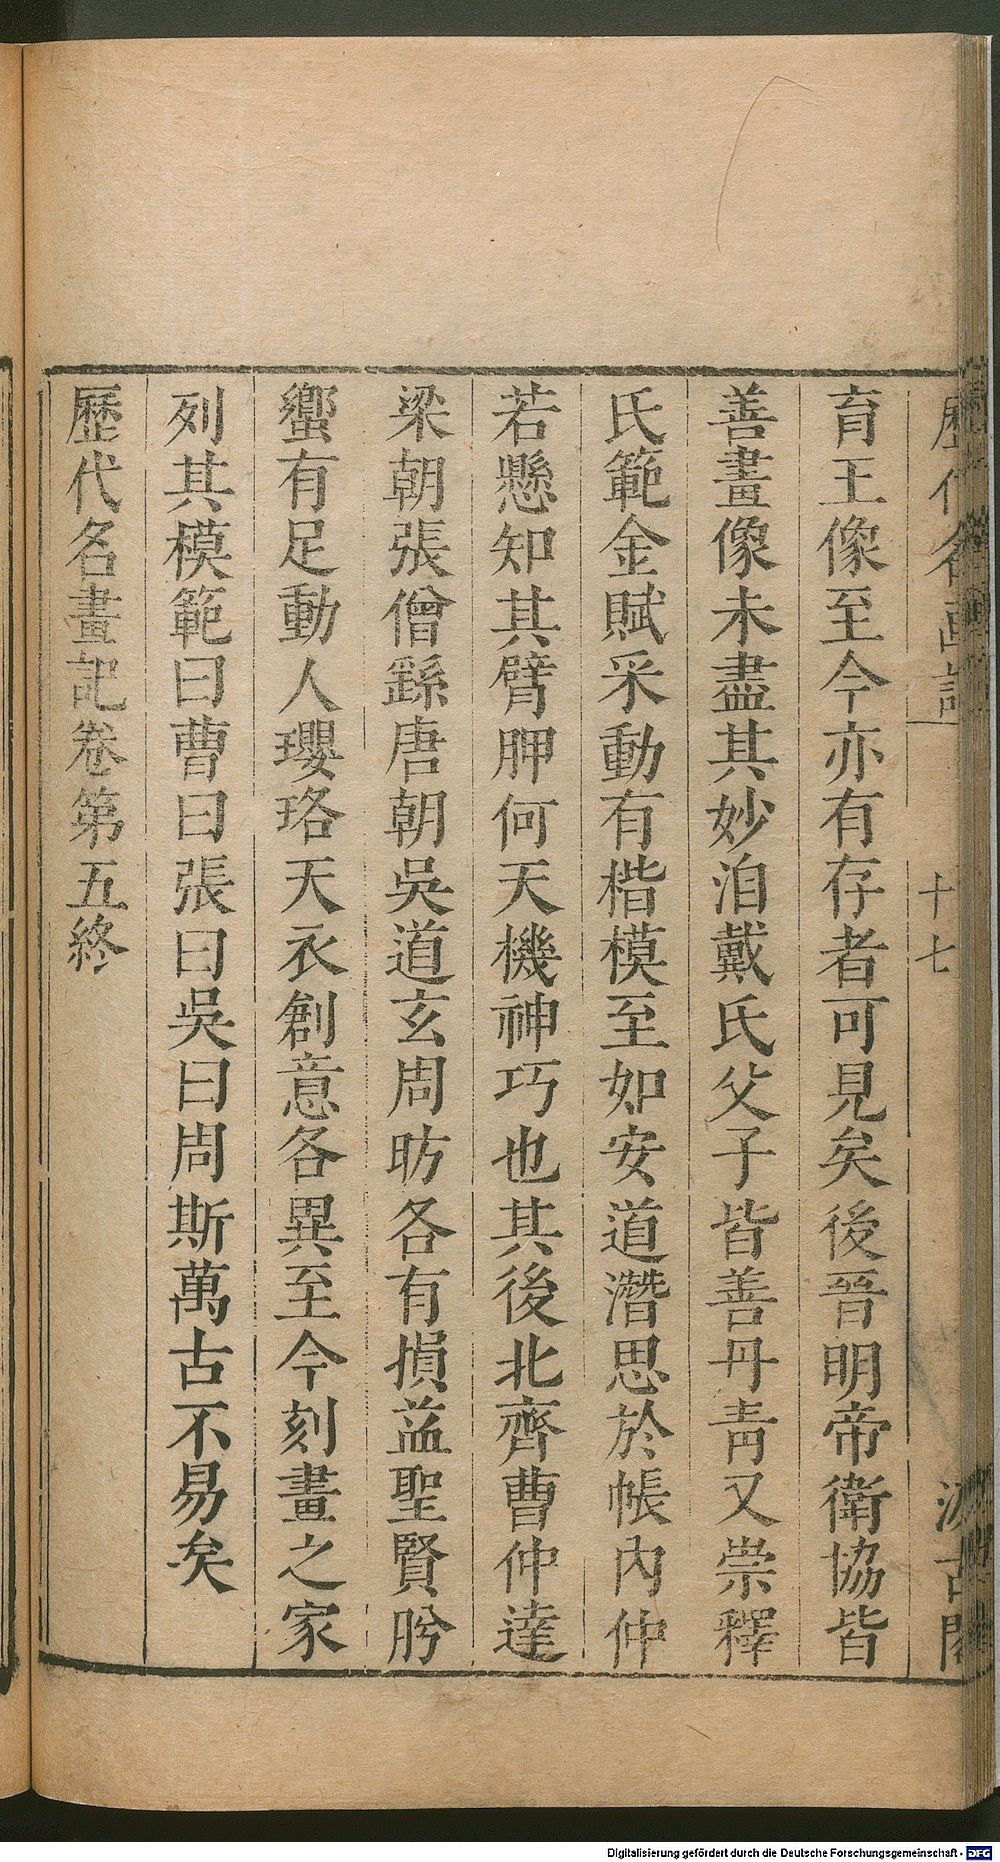 歷代名畫記
十七
汲古閣
育王像至今亦有存者可見矣後晉明帝衛協皆
善畫像未盡其妙洎戴氏父子皆善丹靑又崇釋
氏範金賦采動有楷模至如安道潛思於帳內仲
若懸知其臂胛何天機神巧也其後北齊曹仲達
梁朝張僧繇唐朝吳道玄周昉各有損益聖賢肹
蠁有足動人瓔珞天衣創意各異至今刻畫之家
列其模範曰曹曰張曰吳曰周斯萬古不易矣
歷代名畫記卷第五終
Digitalisierung gefördert durch die Deutsche Forschungsgemeinschaft - DFG